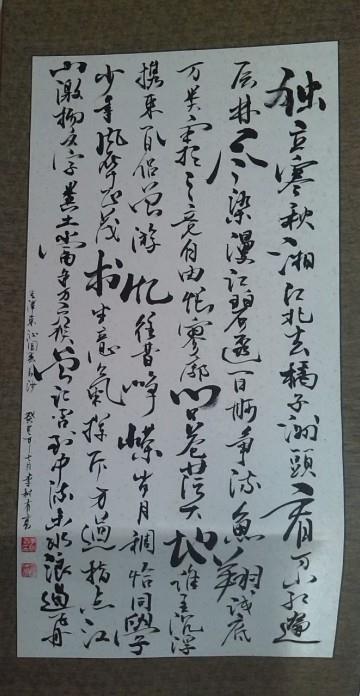 独立寒秋湘江北去橘子洲頭看万山红遍
层林尽染漫江碧透百舸争流魚翔浅底
万类霜天竞自由怅寥廓问苍茫大地谁主沉浮
携来百侣曾游忆往昔峥嵘岁月稠恰同學
少年风華正茂书生意气挥斥方遒指点江
山激扬文字粪土当年万户侯曾记否到中流击水浪遏飞舟
毛泽东沁园春长沙 癸巳年